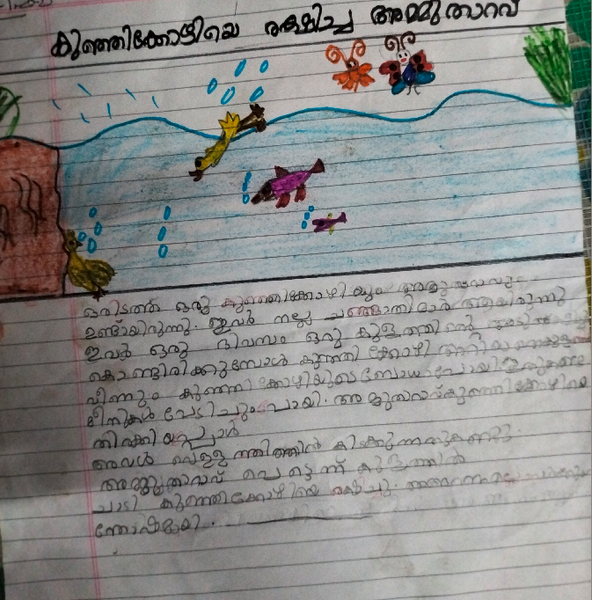 കുഞ്ഞിക്കോഴിയെ രക്ഷിച്ച അമ്മുതാറവ്
ഒരിടത്ത് ഒരു കുഞ്ഞിക്കോഴിയും
ഉണ്ടായിരുന്നു. ഇവർ നല്ല ചങ്ങാതിമാർ ആയിരുന്നു
ഇവർ ഒരു ദിവസം ഒരു കുളത്തിന്റെ
കൊണ്ടിരിക്കുമ്പോൾ കുഞ്ഞിക്കോഴി
വീണും കുഞ്ഞിക്കോഴിയുടെ ബോധം പോയി
മീനുകൾ പേടിച്ചും പോയി. അമ്മുതാറവ് കുഞ്ഞിക്കോഴിയെ
തിരക്കിയപ്പോൾ
അവൾ വെള്ളത്തിൽ കിടക്കുന്നതുകണ്ടു.
അമ്മുതാറവ് പെട്ടെന്ന് കുളത്തിൽ
ചാടി കുഞ്ഞിക്കോഴിയെ രക്ഷിച്ചു.
ന്തോഷമായി.